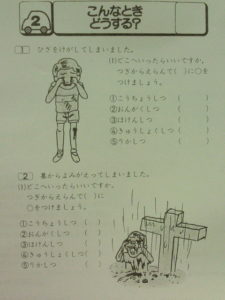 2
こんなとき
どうする?
1 ひざをけがしてしまいました。
(1)どこへいったらいいですか。
つぎからえらんで( )に○を
つけましょう。
①こうちょうしつ ( )
②おんがくしつ ( )
③ほけんしつ ( )
④きゅうしょくしつ( )
⑤りかしつ ( )
2 墓からよみがえってしまいました。
(1)どこへいったらいいですか。
つぎからえらんで( )に
○をつけましょう。
①こうちょうしつ ( )
②おんがくしつ ( )
③ほけんしつ ( )
④きゅうしょくしつ( )
⑤りかしつ ( )